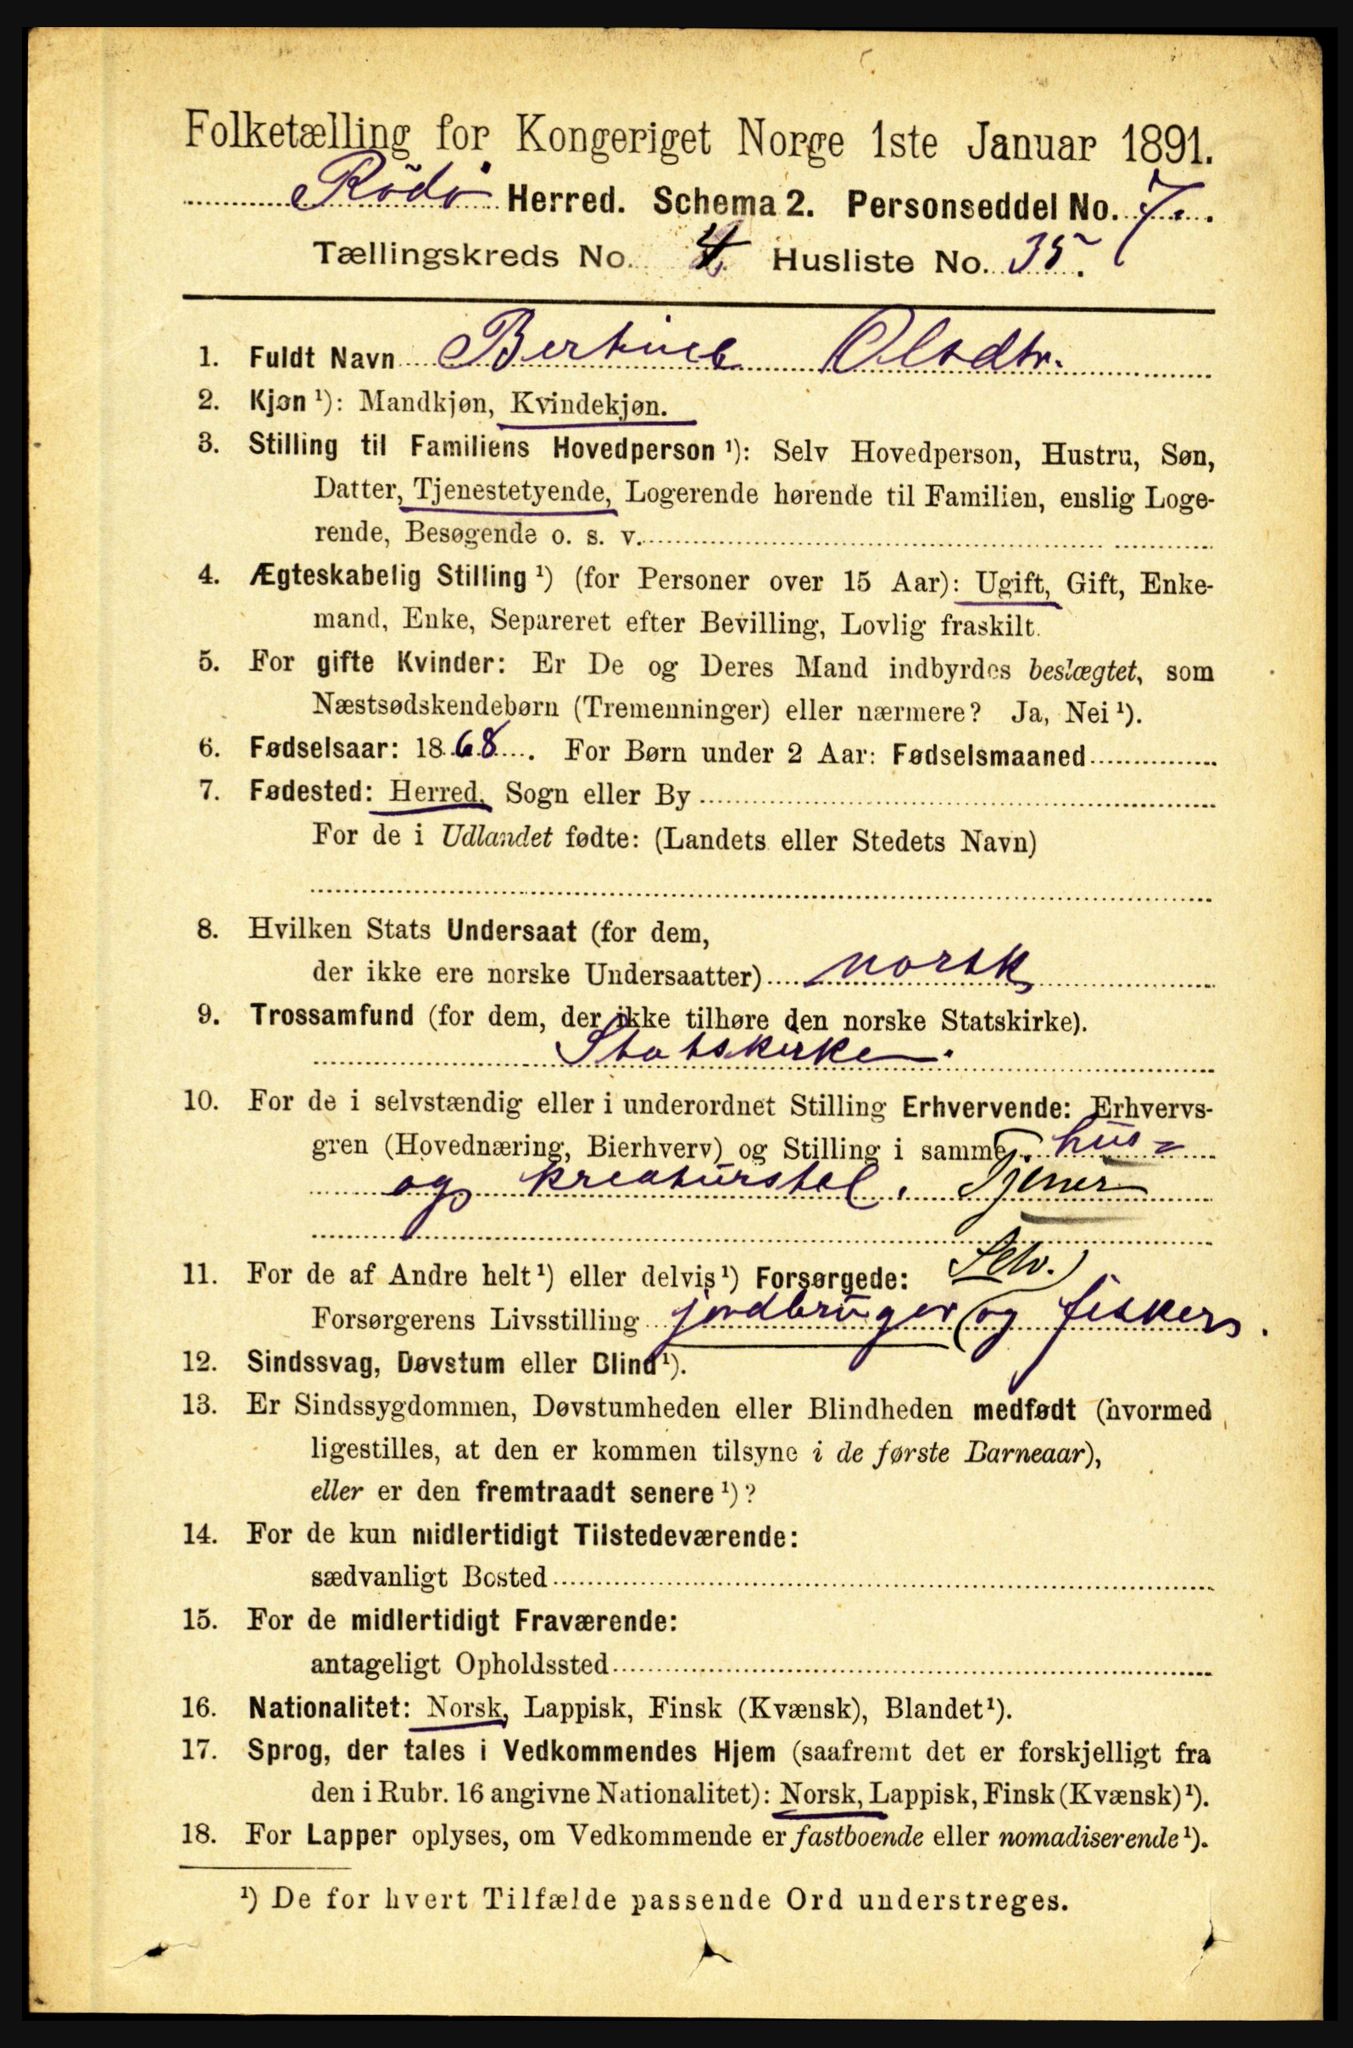 Folketælling for Kongeriget Norge 1ste Januar 1891.
Rödö Herred. Schema 2. Personseddel No. 7.
Tællingskreds No. 4. Husliste No. 35.
1. Fuldt Navn Olsdtr.
2. Kjøn ¹): Mandkjøn, Kvindekjøn.
3. Stilling til Familiens Hovedperson ¹): Selv Hovedperson, Hustru, Søn,
Datter, Tjenestetyende, Logerende hørende til Familien, enslig Loge-
rende, Besøgende o. s. v.
4. Ægteskabelig Stilling ¹) (for Personer over 15 Aar): Ugift, Gift, Enke-
mand, Enke, Separeret efter Bevilling, Lovlig fraskilt.
5. For gifte Kvinder: Er De og Deres Mand indbyrdes beslægtet, som
Næstsødskendebørn (Tremenninger) eller nærmere? Ja, Nei ¹).
6. Fødselsaar: 1868. For Børn under 2 Aar: Fødselsmaaned
7. Fødested: Herred, Sogn eller By
For de i Udlandet fødte: (Landets eller Stedets Navn)
8. Hvilken Stats Undersaat (for dem,
der ikke ere norske Undersaatter) norsk
9. Trossamfund (for dem, der ikke tilhøre den norske Statskirke).
Statskirke.
10. For de i selvstændig eller i underordnet Stilling Erhvervende: Erhvervs-
gren (Hovednæring, Bierhverv) og Stilling i samme hus=
og kreaturstel. Tjener
11. For de af Andre helt ¹) eller delvis ¹) Forsørgede: Selv.
Forsørgerens Livsstilling jordbruger (og fisker.
12. Sindssvag, Døvstum eller Blind ¹).
13. Er Sindssygdommen, Døvstumheden eller Blindheden medfødt (hvormed
ligestilles, at den er kommen tilsyne i de første Barneaar),
eller er den fremtraadt senere ¹)?
14. For de kun midlertidigt Tilstedeværende:
sædvanligt Bosted
15. For de midlertidigt Fraværende:
antageligt Opholdssted
16. Nationalitet: Norsk, Lappisk, Finsk (Kvænsk), Blandet ¹).
17. Sprog, der tales i Vedkommendes Hjem (saafremt det er forskjelligt fra
den i Rubr. 16 angivne Nationalitet): Norsk, Lappisk, Finsk (Kvænsk) ¹).
18. For Lapper oplyses, om Vedkommende er fastboende eller nomadiserende ¹).
¹) De for hvert Tilfælde passende Ord understreges.